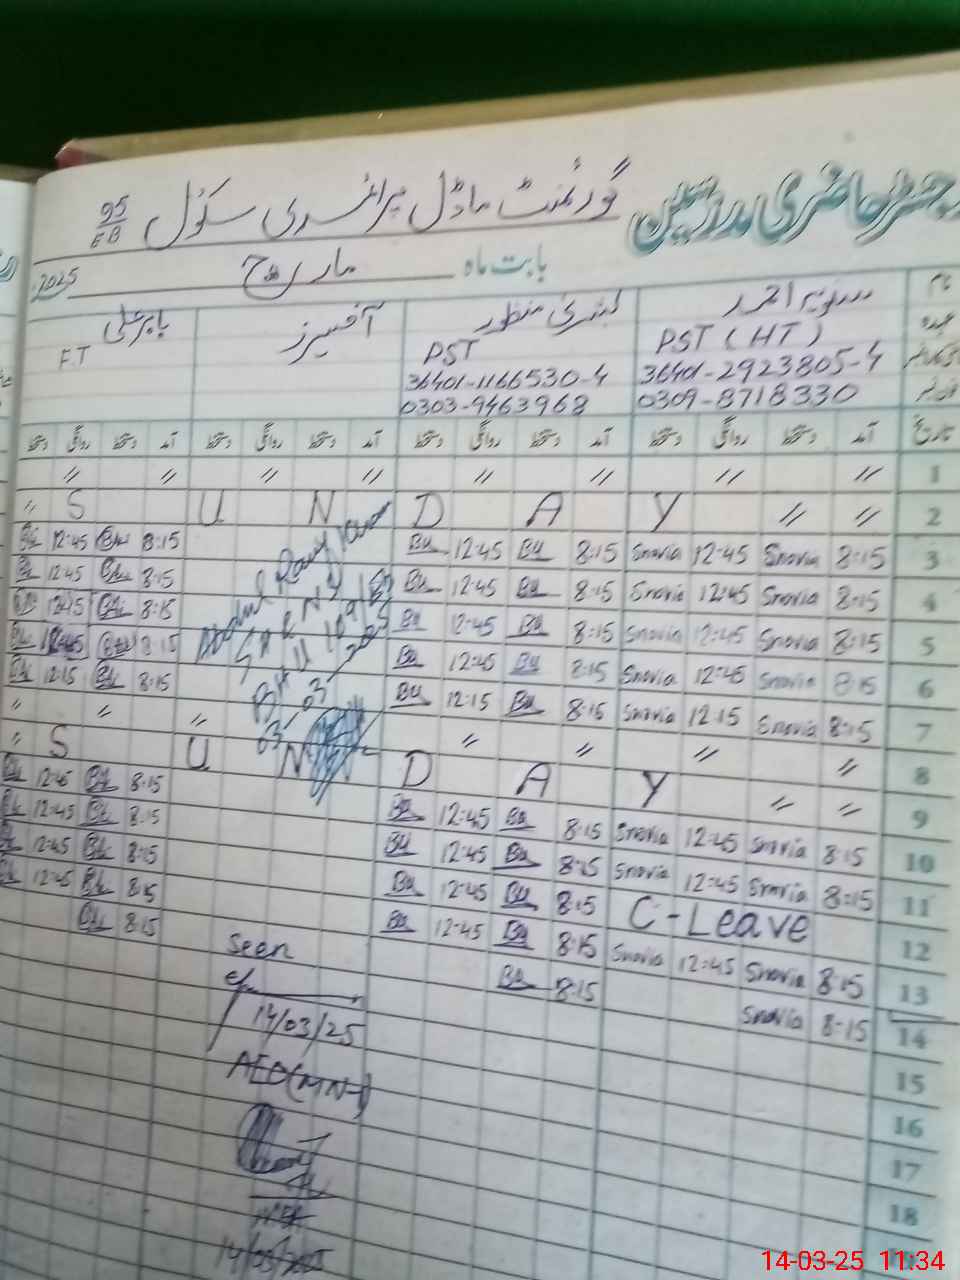 رجسٹر حاضری مدرسین گورنمنٹ ماڈل پرائمری سکول 95/EB
بابت ماہ مارچ 2025
نام
عہدہ
سنویہ احمد بشریٰ منظور آفیسرز بابر علی
PST (HT) PST F.T
36401-2923805-4 36401-1166530-4
0309-8718330 0303-9463968
تاریخ آمد دستخط روانگی دستخط آمد دستخط روانگی دستخط آمد دستخط روانگی دستخط آمد دستخط روانگی دستخط
1 〃 〃 〃 〃 〃 〃 〃
2 S U N D A Y 〃 〃
3 8:15 Snovia 12:45 Snovia 8:15 Bu 12:45 Bu 8:15 12:45
4 8:15 Snovia 12:45 Snovia 8:15 Bu 12:45 Bu 8:15 12:45
5 8:15 Snovia 12:45 Snovia 8:15 Bu 12:45 Bu 8:15 12:45
6 8:15 Snovia 12:45 Snovia 8:15 Bu 12:45 Bu 8:15 12:45
7 8:15 Snovia 12:15 Snovia 8:15 Bu 12:15 Bu 8:15 12:15
8 〃 〃 〃 〃 〃 〃 〃
9 S U N D A Y 〃 〃
10 8:15 Snovia 12:45 Snovia 8:15 Bu 12:45 Bu 8:15 12:45
11 8:15 Snovia 12:45 Snovia 8:15 Bu 12:45 Bu 8:15 12:45
12 C-Leave 8:15 Bu 12:45 Bu 8:15 12:45
13 8:15 Snovia 12:45 Snovia 8:15 Bu 12:45 Bu 8:15 12:45
14 8:15 Snovia 8:15 Bu 8:15
15
16
17
18
Abdul
03-03-2025
Seen
14/03/25
AEO(MN-1)
14/03/2025
14-03-25 11:34